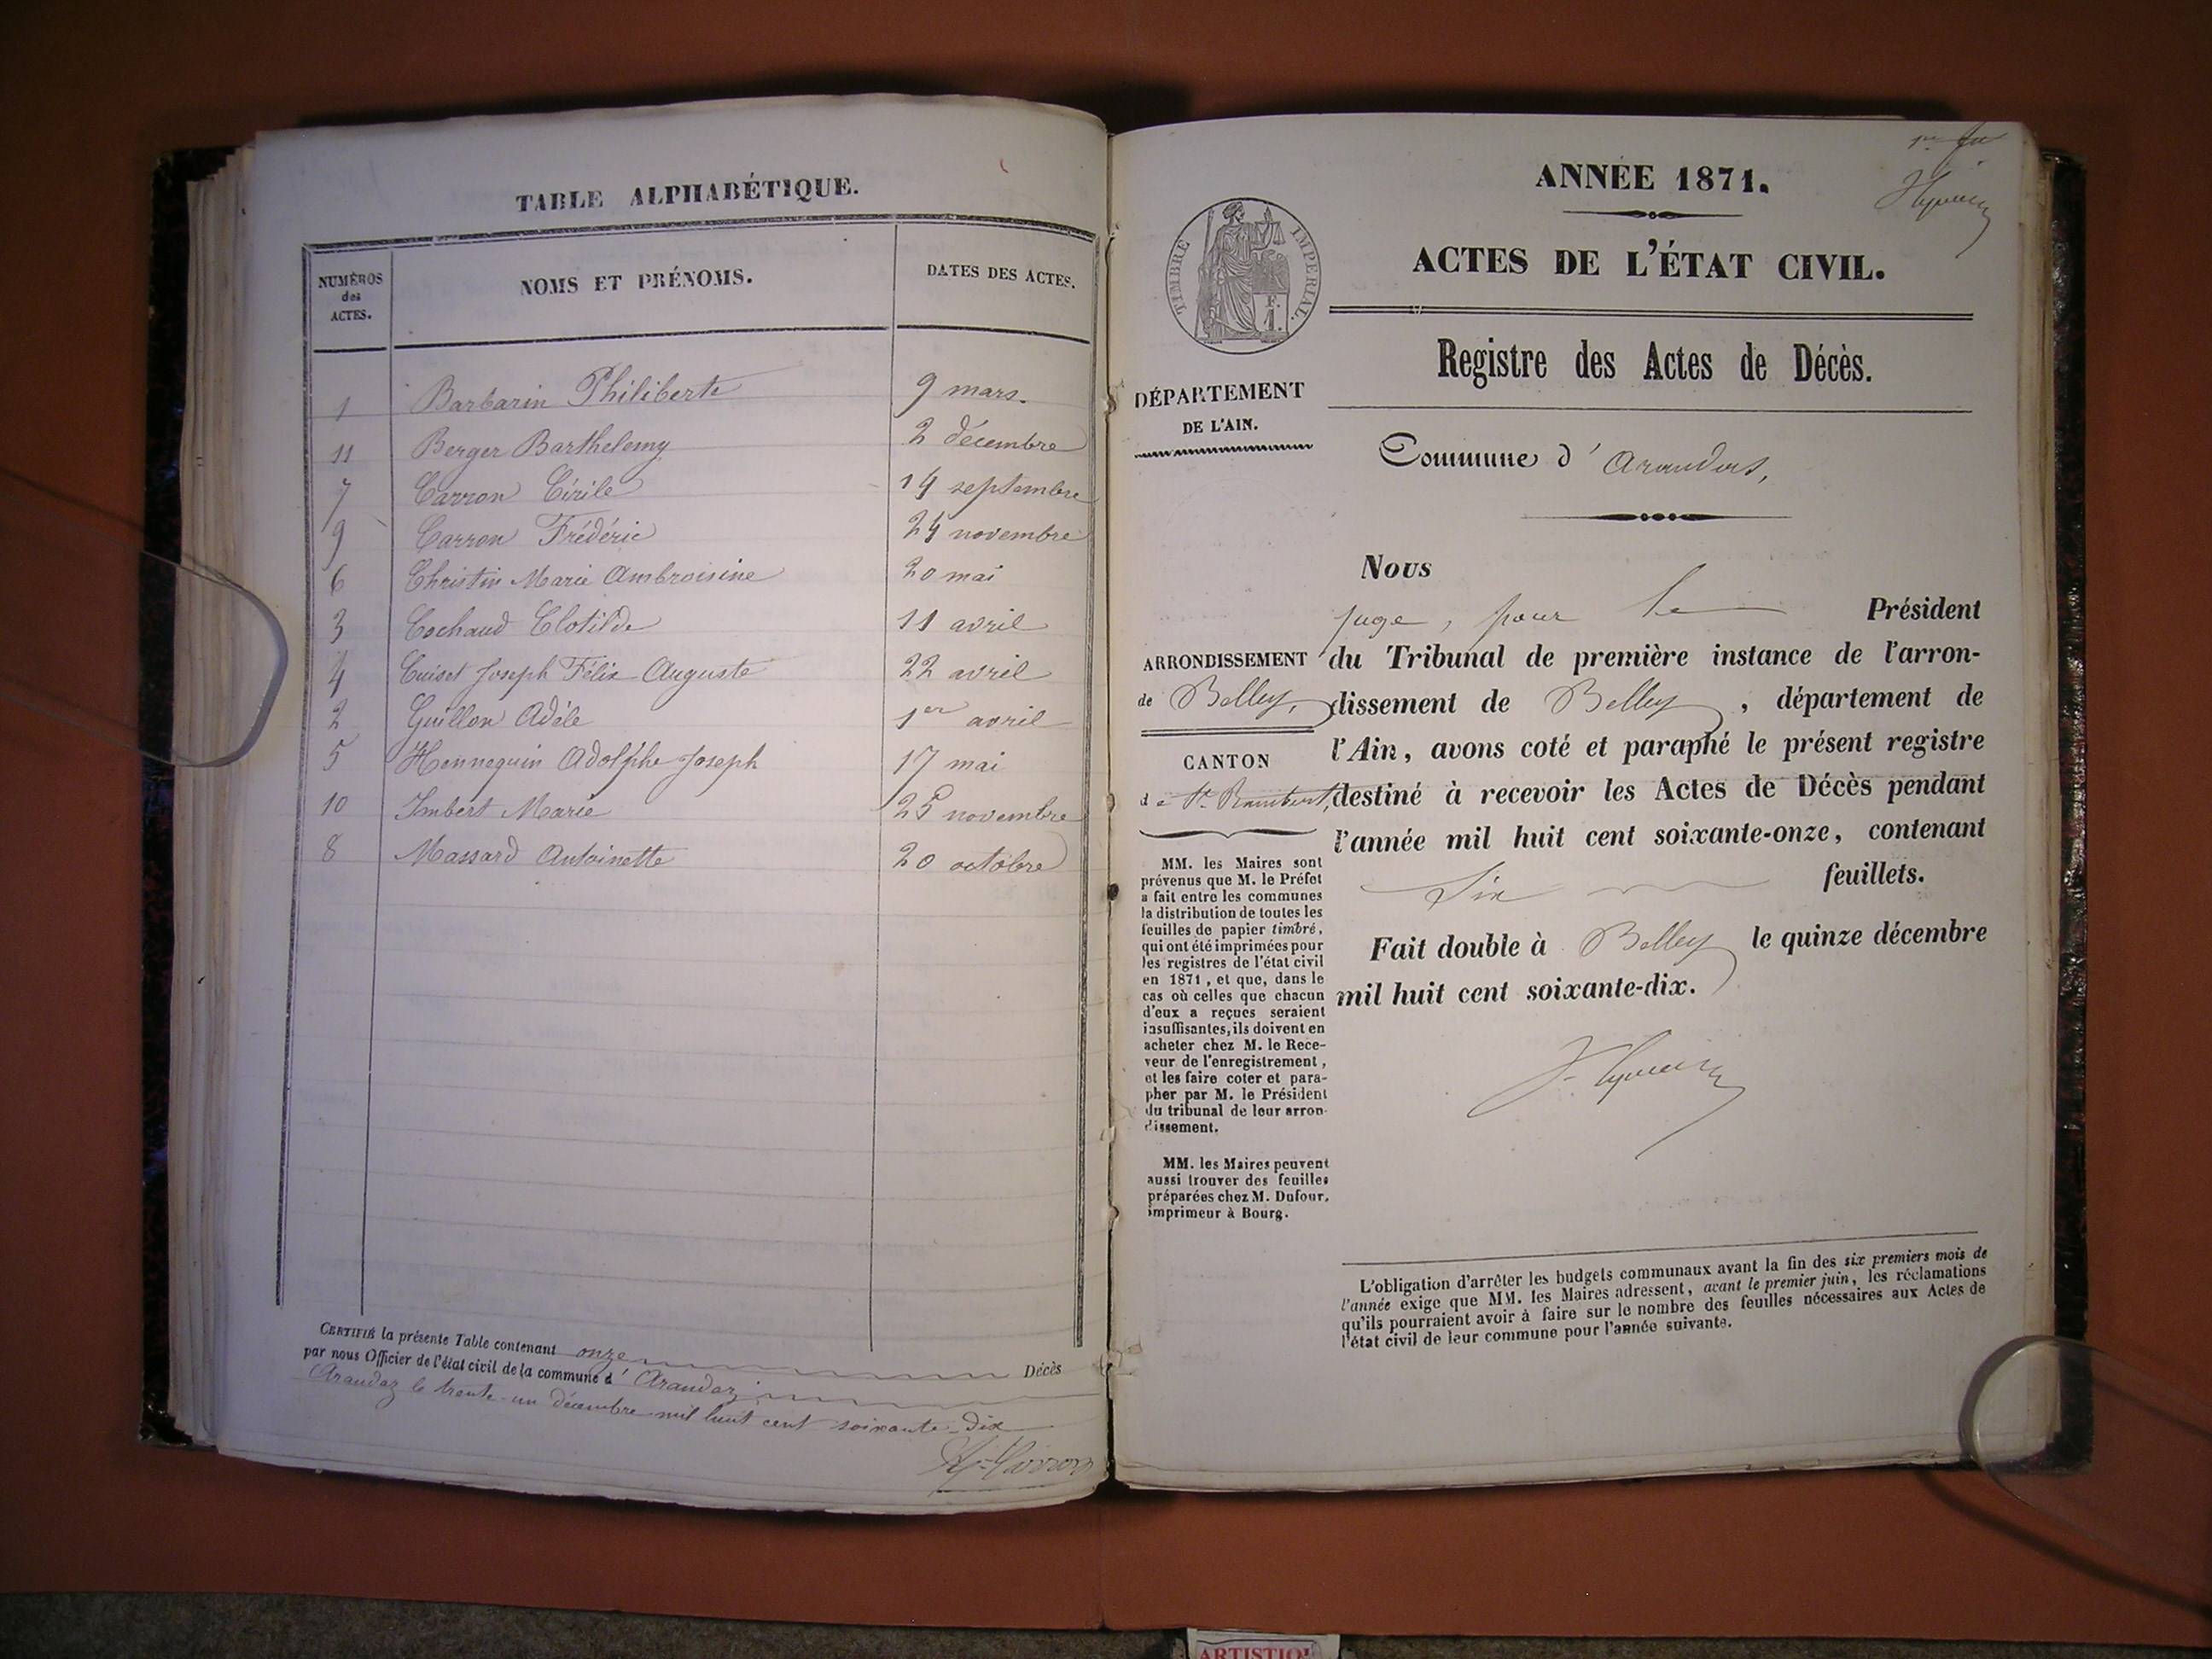 TABLE ALPHABÉTIQUE.
NUMÉROS des ACTES. NOMS ET PRÉNOMS. DATES DES ACTES.
1 Barbarin Philiberte 9 mars.
11 Berger Barthelemy 2 décembre
7 Carron Cirile 14 septembre
9 Carron Frédéric 24 novembre
6 Christin Marie Ambroisine 20 mai
3 Cochaud Clotilde 11 avril
4 Cuiset Joseph Félix Auguste 22 avril
2 Guillon Adèle 1er avril
5 Hennequin Adolphe Joseph 17 mai
10 Imbert Marie 25 novembre
8 Massard Antoinette 20 octobre
CERTIFIÉ la présente Table contenant onze Décès
par nous Officier de l'état civil de la commune d' Arandaz
Arandaz le trente-un décembre mil huit cent soixante-dix
Carron
ANNÉE 1871.
TIMBRE IMPERIAL.
F.
1.
ACTES DE L'ÉTAT CIVIL.
Registre des Actes de Décès.
DÉPARTEMENT
DE L'AIN.
Commune d' Arandas,
ARRONDISSEMENT
de Belley,
CANTON
de St Rambert,
MM. les Maires sont
prévenus que M. le Préfet
a fait entre les communes
la distribution de toutes les
feuilles de papier timbré,
qui ont été imprimées pour
les registres de l'état civil
en 1871, et que, dans le
cas où celles que chacun
d'eux a reçues seraient
insuffisantes, ils doivent en
acheter chez M. le Rece-
veur de l'enregistrement,
et les faire coter et para-
pher par M. le Président
du tribunal de leur arron-
dissement.
MM. les Maires peuvent
aussi trouver des feuilles
préparées chez M. Dufour,
imprimeur à Bourg.
Nous
juge, pour le Président
du Tribunal de première instance de l'arron-
dissement de Belley, département de
l'Ain, avons coté et paraphé le présent registre
destiné à recevoir les Actes de Décès pendant
l'année mil huit cent soixante-onze, contenant
Six feuillets.
Fait double à Belley le quinze décembre
mil huit cent soixante-dix.
L'obligation d'arrêter les budgets communaux avant la fin des six premiers mois de
l'année exige que MM. les Maires adressent, avant le premier juin, les réclamations
qu'ils pourraient avoir à faire sur le nombre des feuilles nécessaires aux Actes de
l'état civil de leur commune pour l'année suivante.